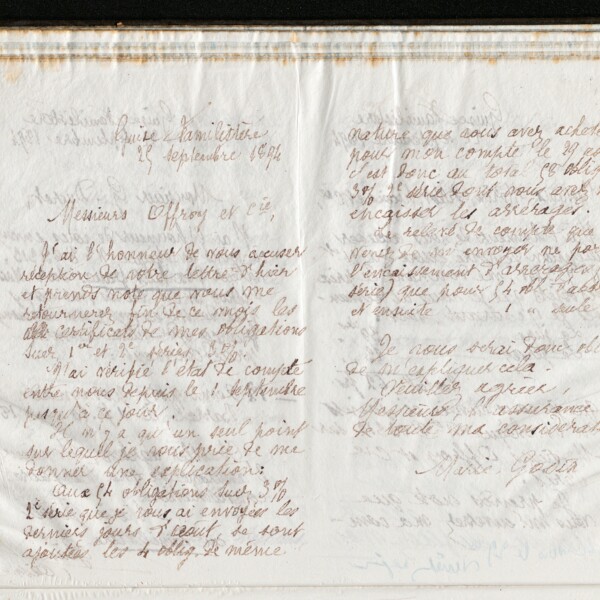 Guise Familistère
25 septembre 1894
Messieurs Offroy et Cie,
J'ai l'honneur de vous accuser
réception de votre lettre d'hier
et prends note que vous me
retournerez fin de ce mois les
certificats de mes obligations
Suez 1ère et 2e séries 3%.
J'ai vérifié l'état de compte
entre nous depuis le 1 septembre
jusqu'à ce jour.
Il n'y a qu'un seul point
sur lequel je vous prie de me
donner une explication:
Aux 54 obligations Suez 3%
2e série que je vous ai envoyées les
derniers jours d'août se sont
ajoutées les 4 oblig. de même
nature que vous avez acheté
pour mon compte le 29
c'est donc au total 58 oblig
3% 2e série dont vous avez
encaisser les arrérages.
Le relevé de compte que
venez de m'envoyer ne por
l'encaissement d'arrérages
série) que pour 54 obl. d'abo
et ensuite 1 " seule
Je vous serai donc obl
de m'expliquer cela.
Veuillez agréer,
Messieurs, l'assurance
de toute ma considérat
Marie Godin